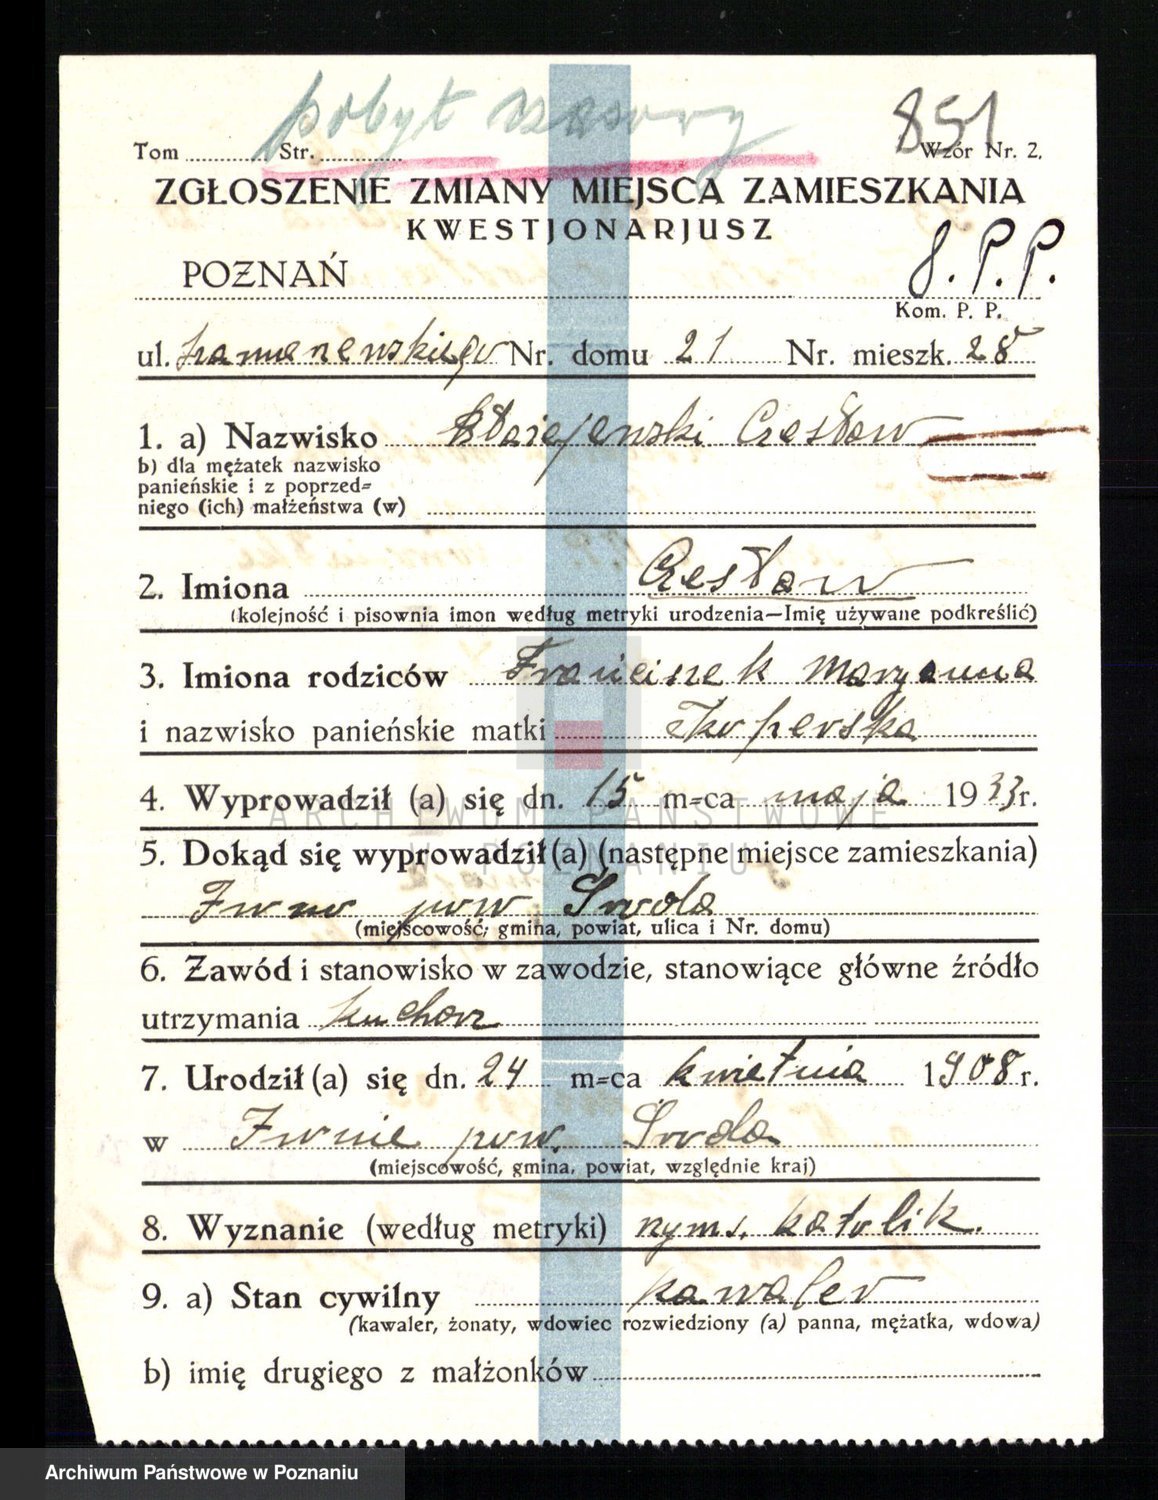 pobyt czasowy
851
Tom ............ Str. ............ Wzór Nr. 2.
ZGŁOSZENIE ZMIANY MIEJSCA ZAMIESZKANIA
KWESTJONARJUSZ
POZNAŃ 8. P. P.
Kom. P. P.
ul. Nr. domu 21 Nr. mieszk. 28
1. a) Nazwisko Czesław
b) dla mężatek nazwisko
panieńskie i z poprzed=
niego (ich) małżeństwa (w)
2. Imiona Czesław
(kolejność i pisownia imon według metryki urodzenia—Imię używane podkreślić)
3. Imiona rodziców Franciszek Maryanna
i nazwisko panieńskie matki
4. Wyprowadził (a) się dn. 15 m=ca maja 1933 r.
ARCHIWUM PAŃSTWOWE
W POZNANIU
5. Dokąd się wyprowadził (a) (następne miejsce zamieszkania)
Iwno pow Środa
(miejscowość, gmina, powiat, ulica i Nr. domu)
6. Zawód i stanowisko w zawodzie, stanowiące główne źródło
utrzymania kucharz
7. Urodził (a) się dn. 24 m=ca kwietnia 1908 r.
w Iwnie pow. Środa
(miejscowość, gmina, powiat, względnie kraj)
8. Wyznanie (według metryki) rzyms. katolik.
9. a) Stan cywilny kawaler
(kawaler, żonaty, wdowiec rozwiedziony (a) panna, mężatka, wdowa)
b) imię drugiego z małżonków
Archiwum Państwowe w Poznaniu